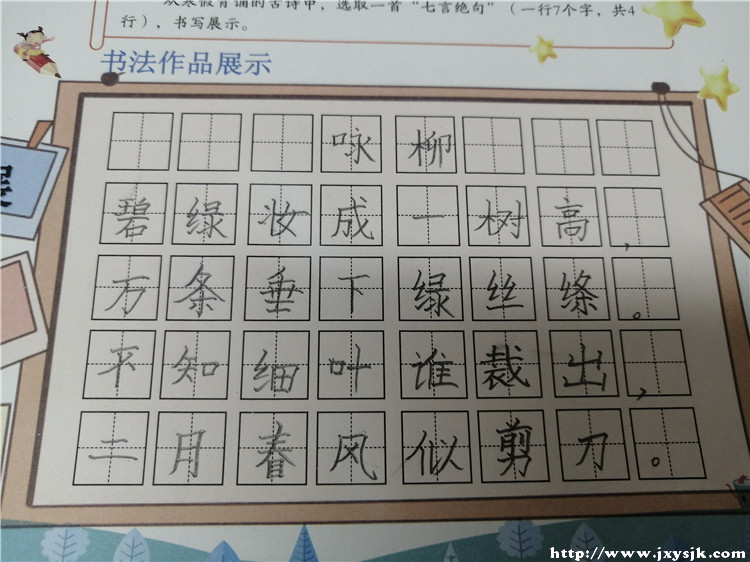 从寒假背诵的古诗中，选取一首“七言绝句”（一行7个字，共4
行），书写展示。
书法作品展示
咏柳
碧绿妆成一树高，
万条垂下绿丝绦。
不知细叶谁裁出，
二月春风似剪刀。
http://www.jxysjk.com